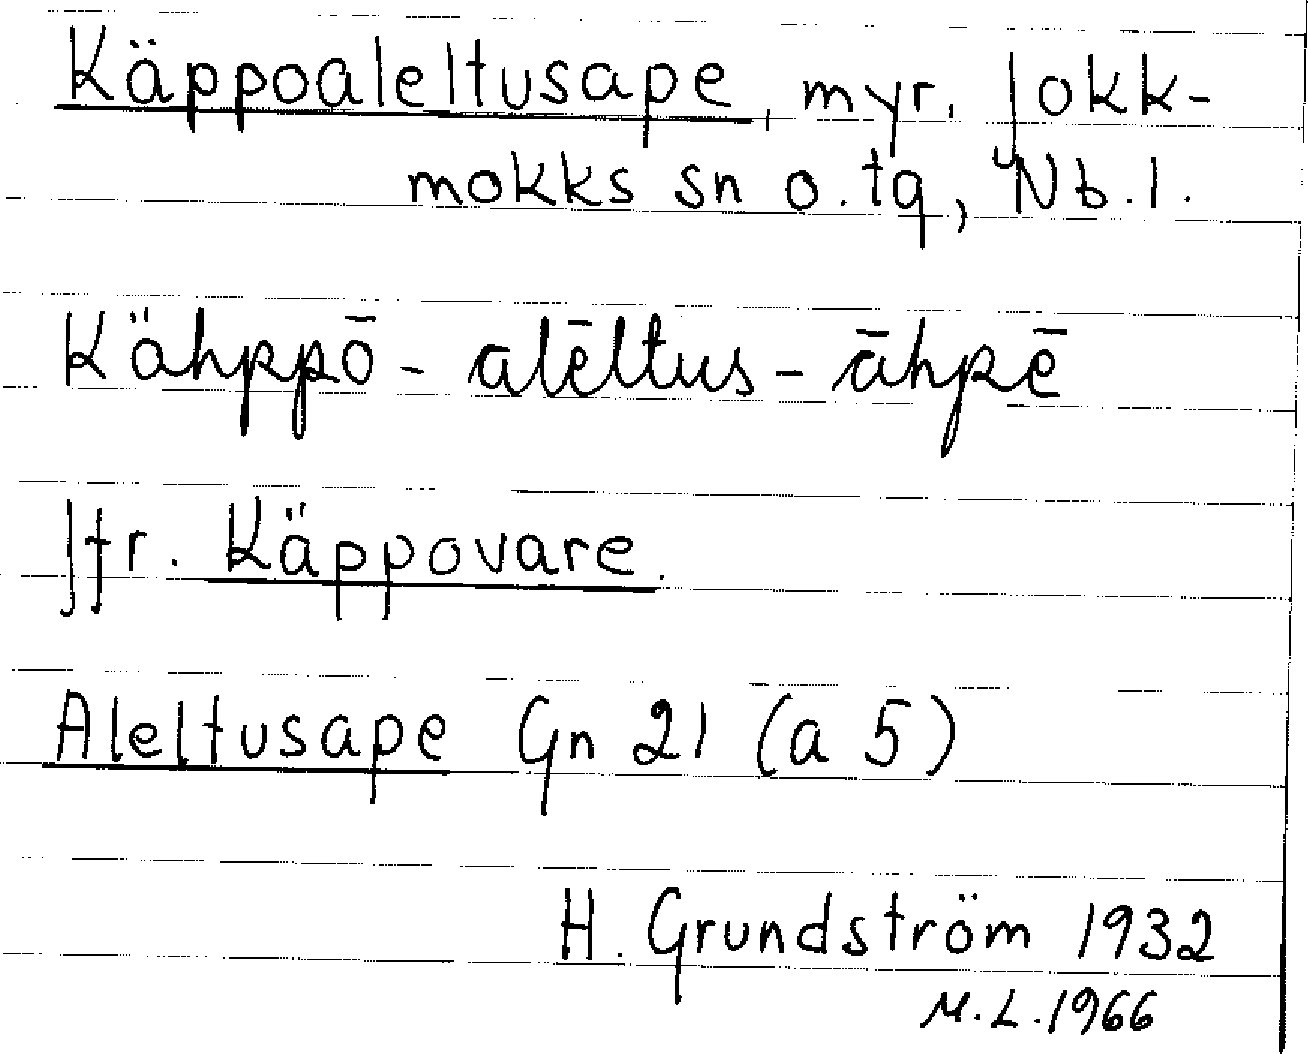 Käppoaleltusape, myr, Jokk-
mokks sn o. tg, Nb. l.
Kähppō - alēltus - āhpē
Jfr. Käppovare.
Aleltusape Gn 21 (a 5)
H. Grundström 1932
M.L. 1966